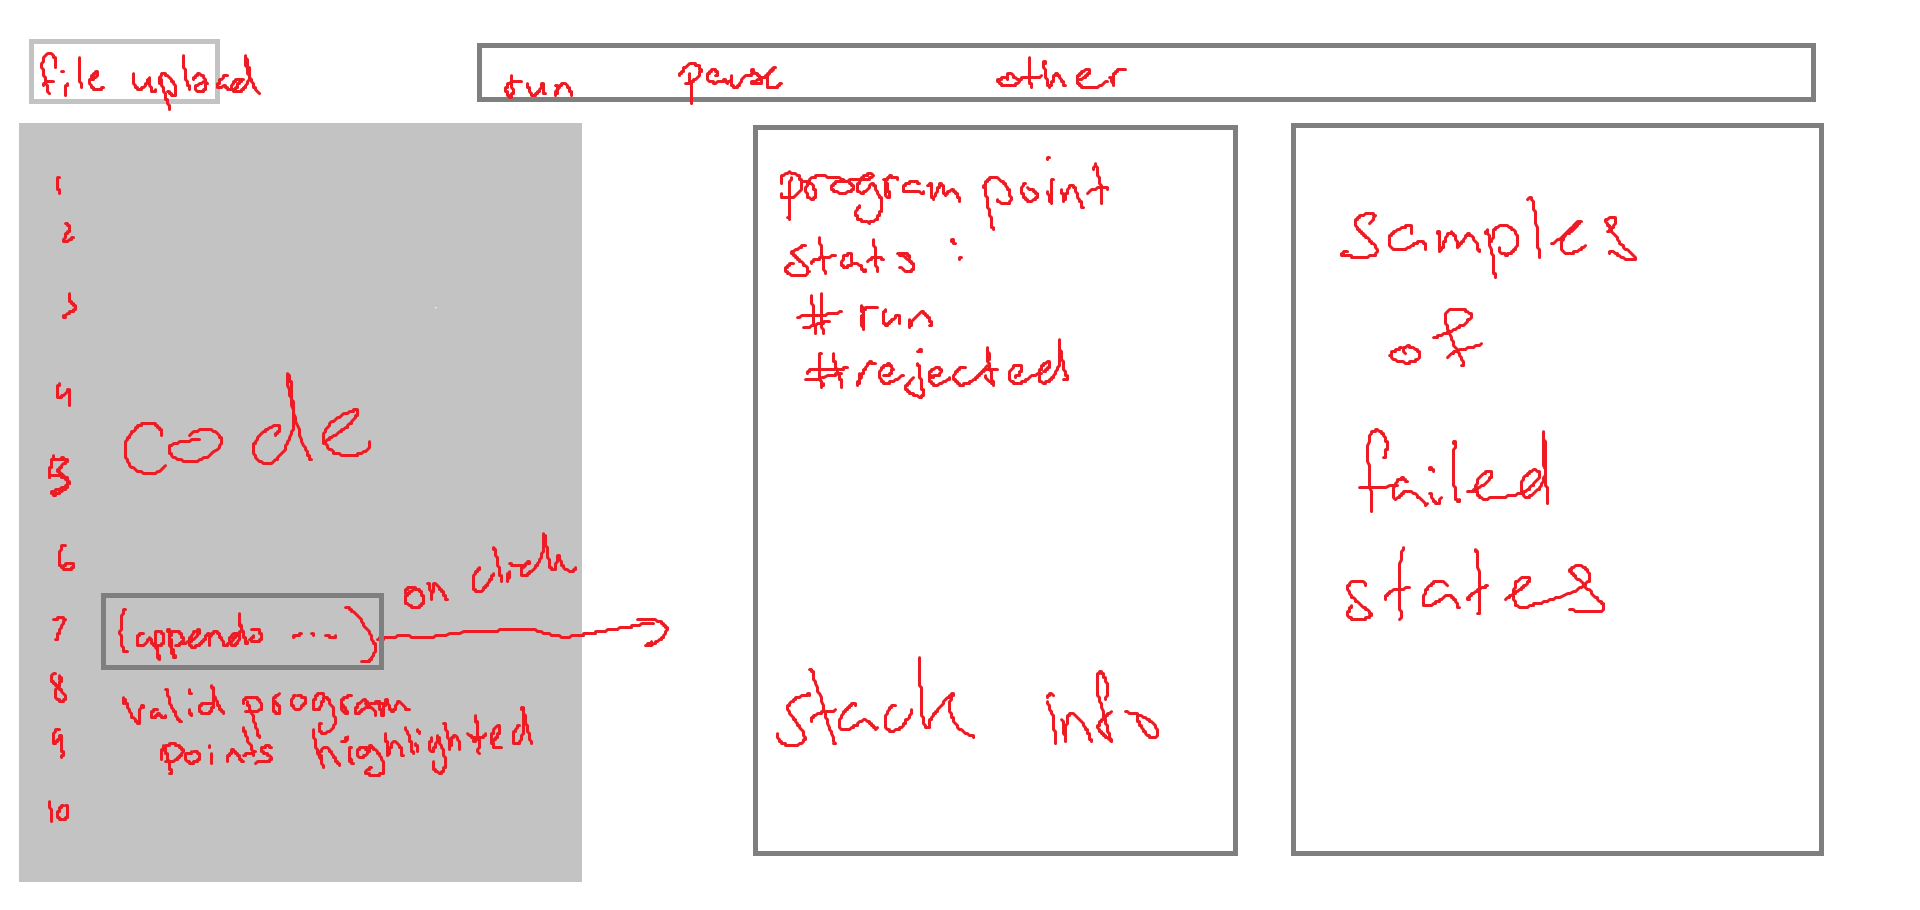 file upload
run pause other
1
2
3
4
code
5
6
on click
7 (appendo ...)
8 valid program
9 points highlighted
10
program point
stats:
# run
#rejected
stack info
samples
of
failed
states